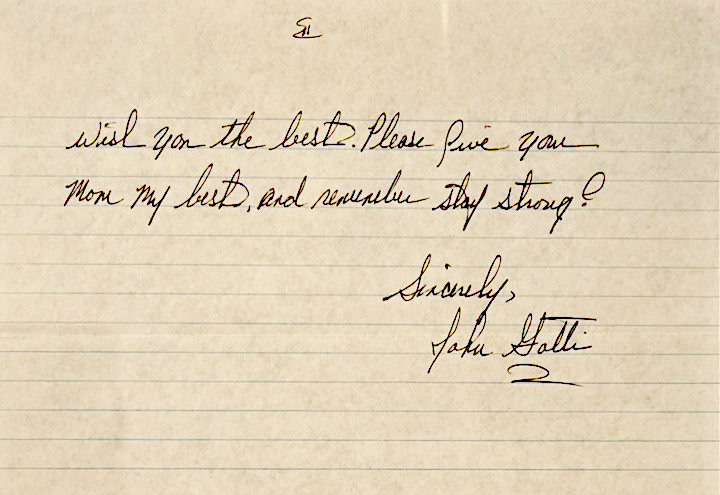 II
wish you the best. Please give your
Mom my best, and remember stay strong!
Sincerely,
John Gotti